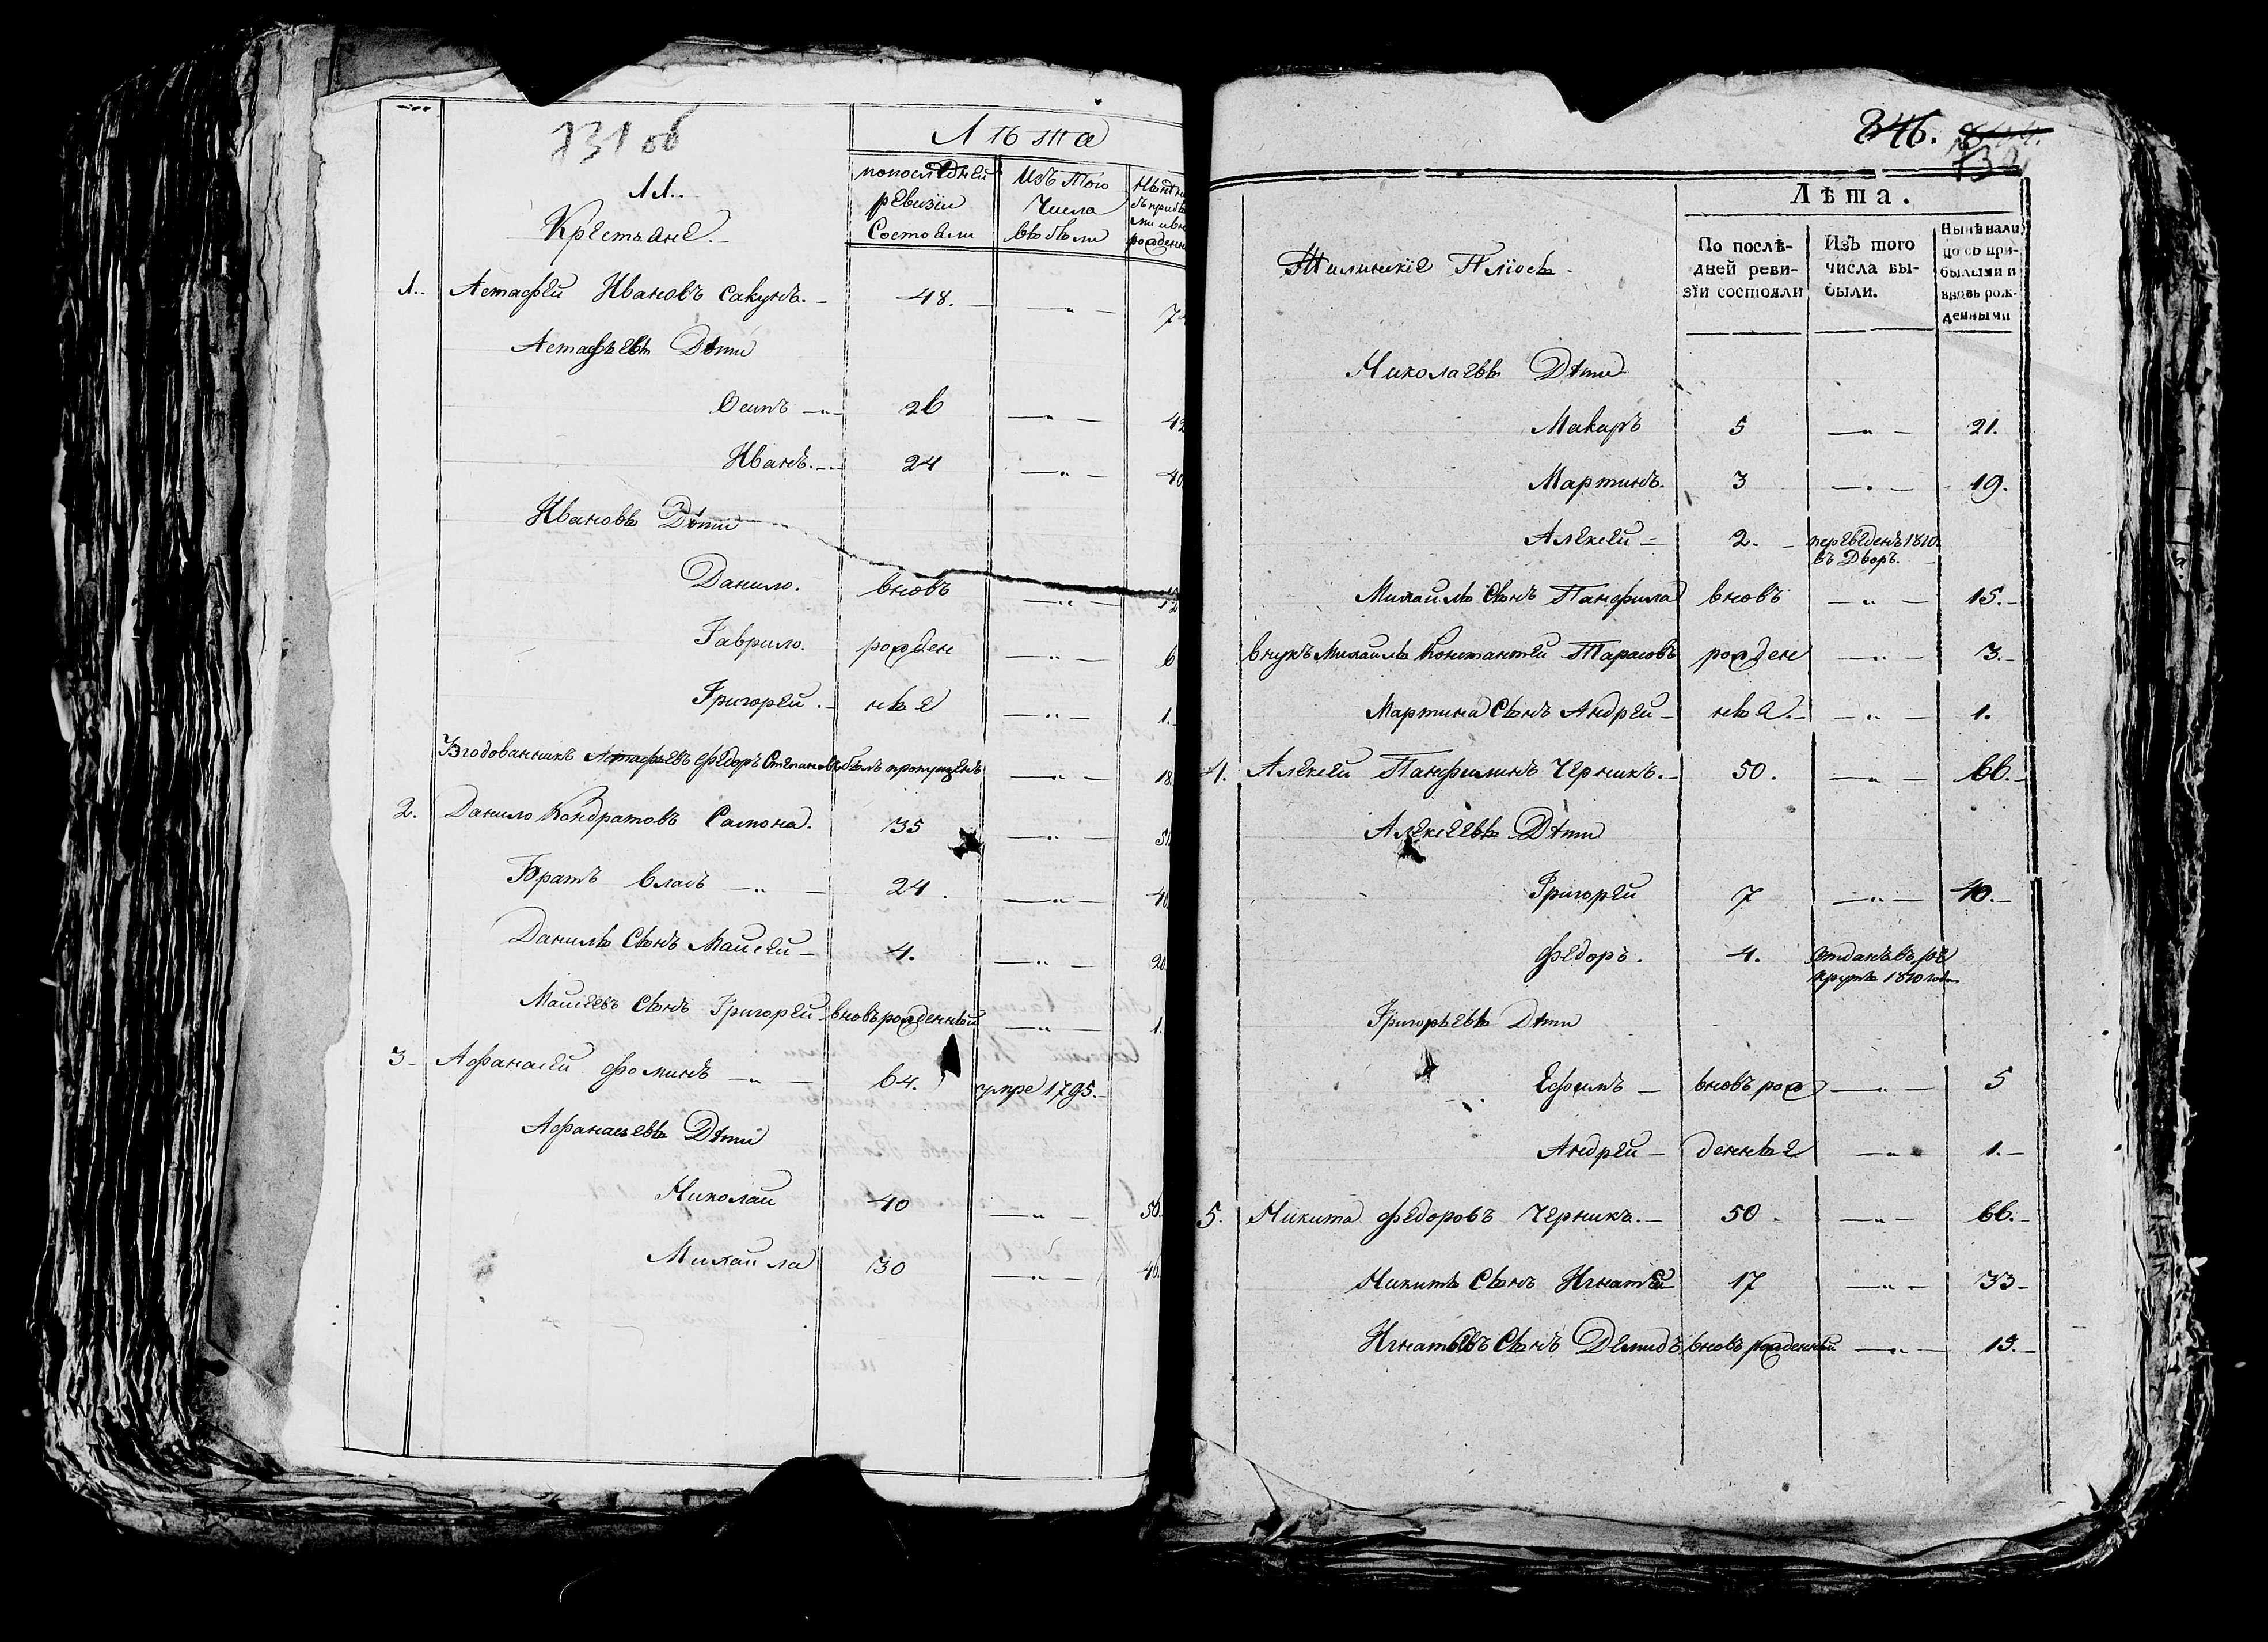 131 об
Лѣта
11.
Крестьяне.
по последней ревизiи Состояли
Изъ того Числа выбыли
1. Астафей Ивановъ Сакунъ. 48. —„—
Астафьевы Дѣти
Осипъ —„— 26 —„— 42
Иванъ. 24 —„— 40
Ивановы Дѣти
Данило. вновь —„— 12
Гаврило. рожден —„— 6
Григорей. ные —„— 1.
Взгодованникъ Астафьевъ Федоръ Степановъ былъ пропущенъ —„— 18
2. Данило Кондратовъ Сапона. 35 —„— 51
Братъ Власъ —„— 24 —„— 40
Данилы Сынъ Маисей 4. —„— 20
Маисеевъ Сынъ Григорей вновьрожденный —„— 1.
3 Афанасей Фоминъ —„— 64. умре 1795.
Афанасьевы Дѣти
Николай 40 —„— 56.
Михаила 30 —„— 46.
346.
132
Лѣта.
По послѣдней ревизiи состояли
Изъ того числа выбыли.
Нынѣ налицо съ прибылыми и вновь рожденными
Николаевы Дѣти
Макаръ 5 —„— 21.
Мартинъ. 3 —„— 19.
Алексей 2. переведенъ 1810. въ Дворъ.
Михаилы Сынъ Панфила вновь —„— 15.
внукъ Михаилы Константей Тарасовъ рожден —„— 3.
Мартина Сынъ Андрей ные. —„— 1.
4. Алексей Панфилинъ Черникъ. 50. —„— 66.
Алексеевы Дѣти
Григорей 7 —„— 40.
Федоръ. 4. отданъ въ рекруты 1810 года
Григорьевы Дѣти
Ефимъ вновь рож —„— 5
Андрей денные —„— 1.
5. Никита Федоровъ Черникъ. 50 —„— 66.
Никиты Сынъ Игнатей 17 —„— 33
Игнатьевъ Сынъ Демидъ вновь рожденный —„— 13.